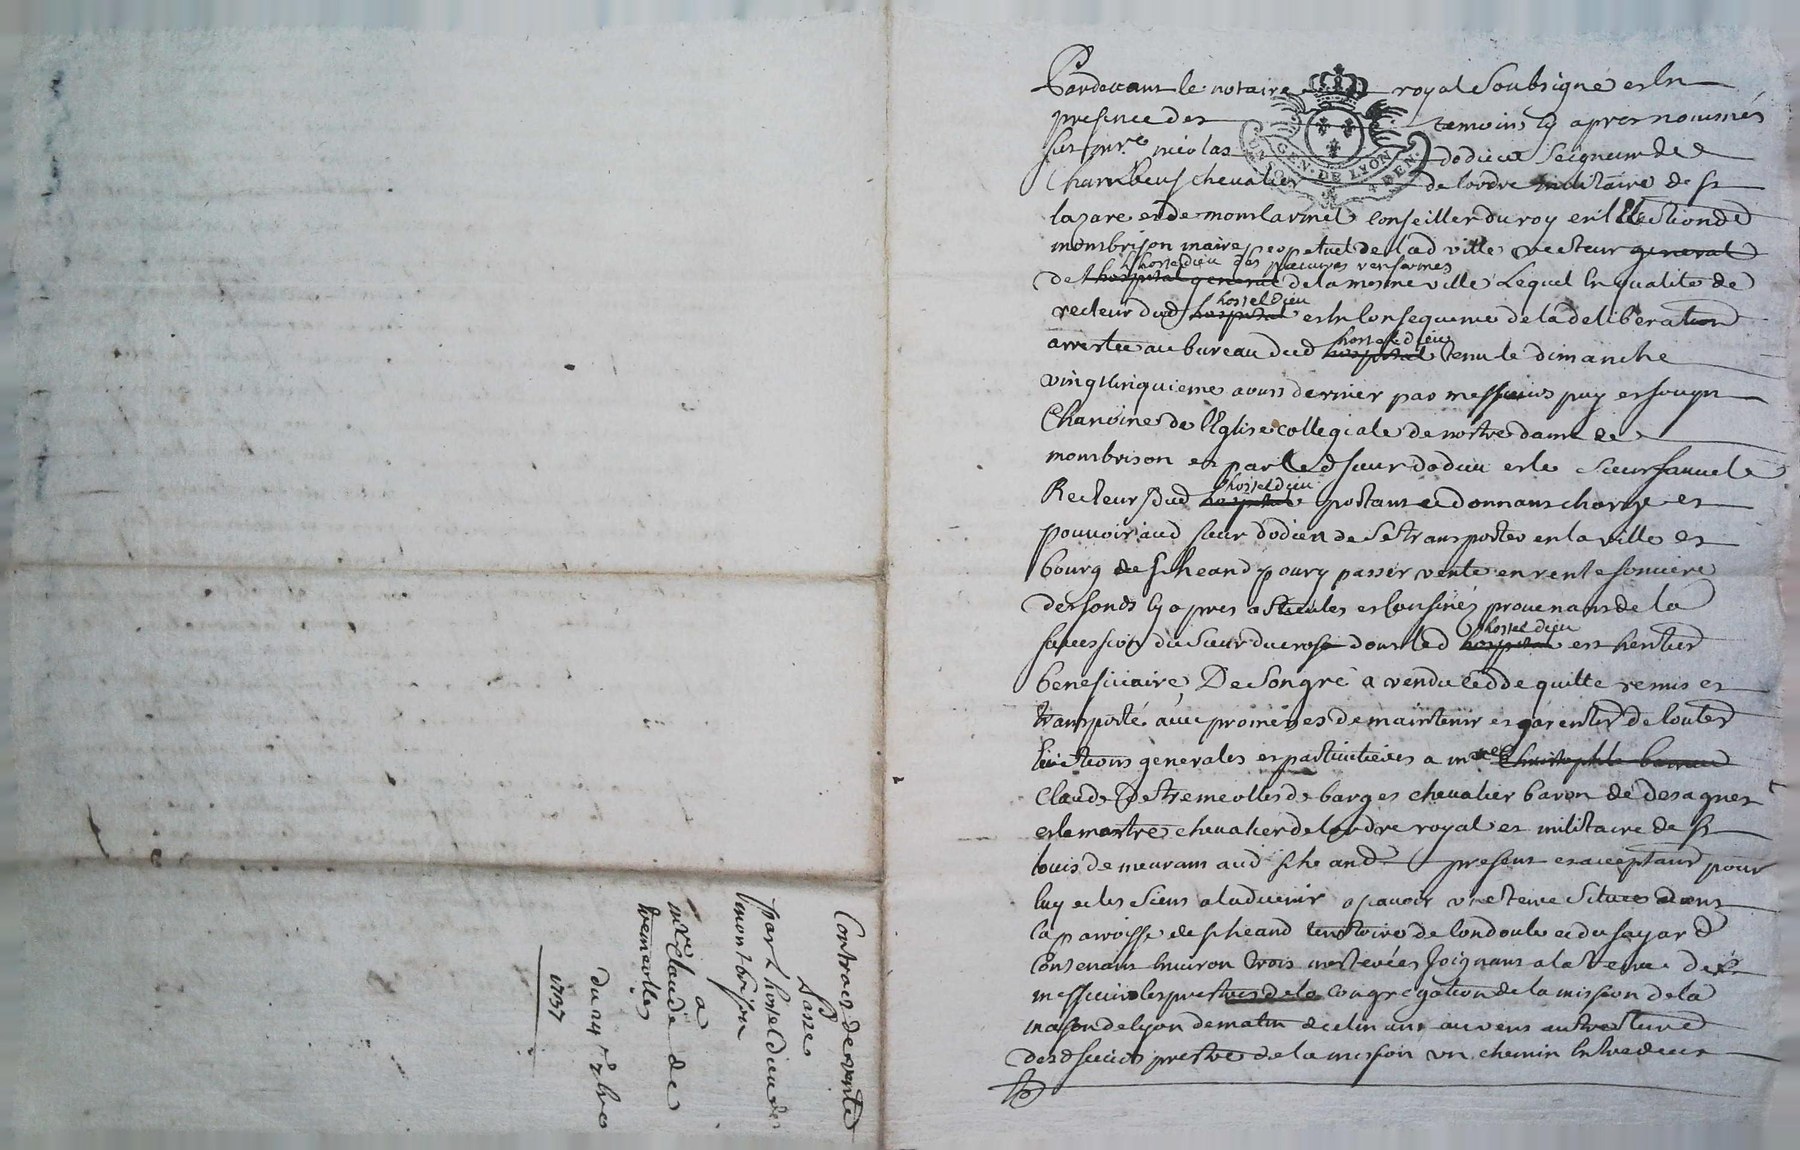 Pardevant le notaire royal Soubsigné et En
presence des temoins cy apres nommés
fut mre nicolas dodieu Seigneur de
Chambeuf chevalier de lordre militaire de st
lazare et de montcarmel conseiller du roy en lElection de
montbrison maire perpetuel de lad ville recteur general
lhosteldieu des pauvres renfermes
de lhospital general de la mesme ville Lequel En qualité de
hosteldieu
recteur dud hospital et En Consequence de la deliberation
hosteldieu
arrestée au bureau dud hospital tenu le dimanche
vingtcinquieme aoust dernier par messieurs puy et souyn
Chanoine de l'Eglise collegiale de nostre dame de
montbrison et par led sieur dodieu et le Sieur
hosteldieu
Recteurs Dud hospital portant et donnant charge et
pouvoir aud sieur dodieu de Se transporter en la ville et
bourg de st heand pour y passer vente en rente fonciere
des fonds cy apres et Confinés provenant de la
hosteldieu
succession du Sieur ducros dont led hospital est heritier
beneficiaire, De Son gré a vendu ceddé quitte remis et
transporté avec promesses de maintenir et garentir de toutes
Evictions generales et particulieres a mre Christophle
Claude Destremeolles de barges chevalier baron de desagnes
et lemastre chevalier de lordre royal et militaire de st
louis demeurant aud st heand present et acceptant pour
luy et les Siens a ladvenir a scavoir une terre Scituée dans
la paroisse de st heand territoire de londoule et du fayard
Contenant Environ trois mesterées Joignant a la terre de
messieurs les prestres de la Congregation de la mission de la
maison de lyon de matin au vent autre terre
desd sieurs prestres de la mission un chemin Entredeux
Contract de vente
passé
par Lhosteldieu de
montbrison
a
mre Claude de
tremeolles
du 24 7bre
1737